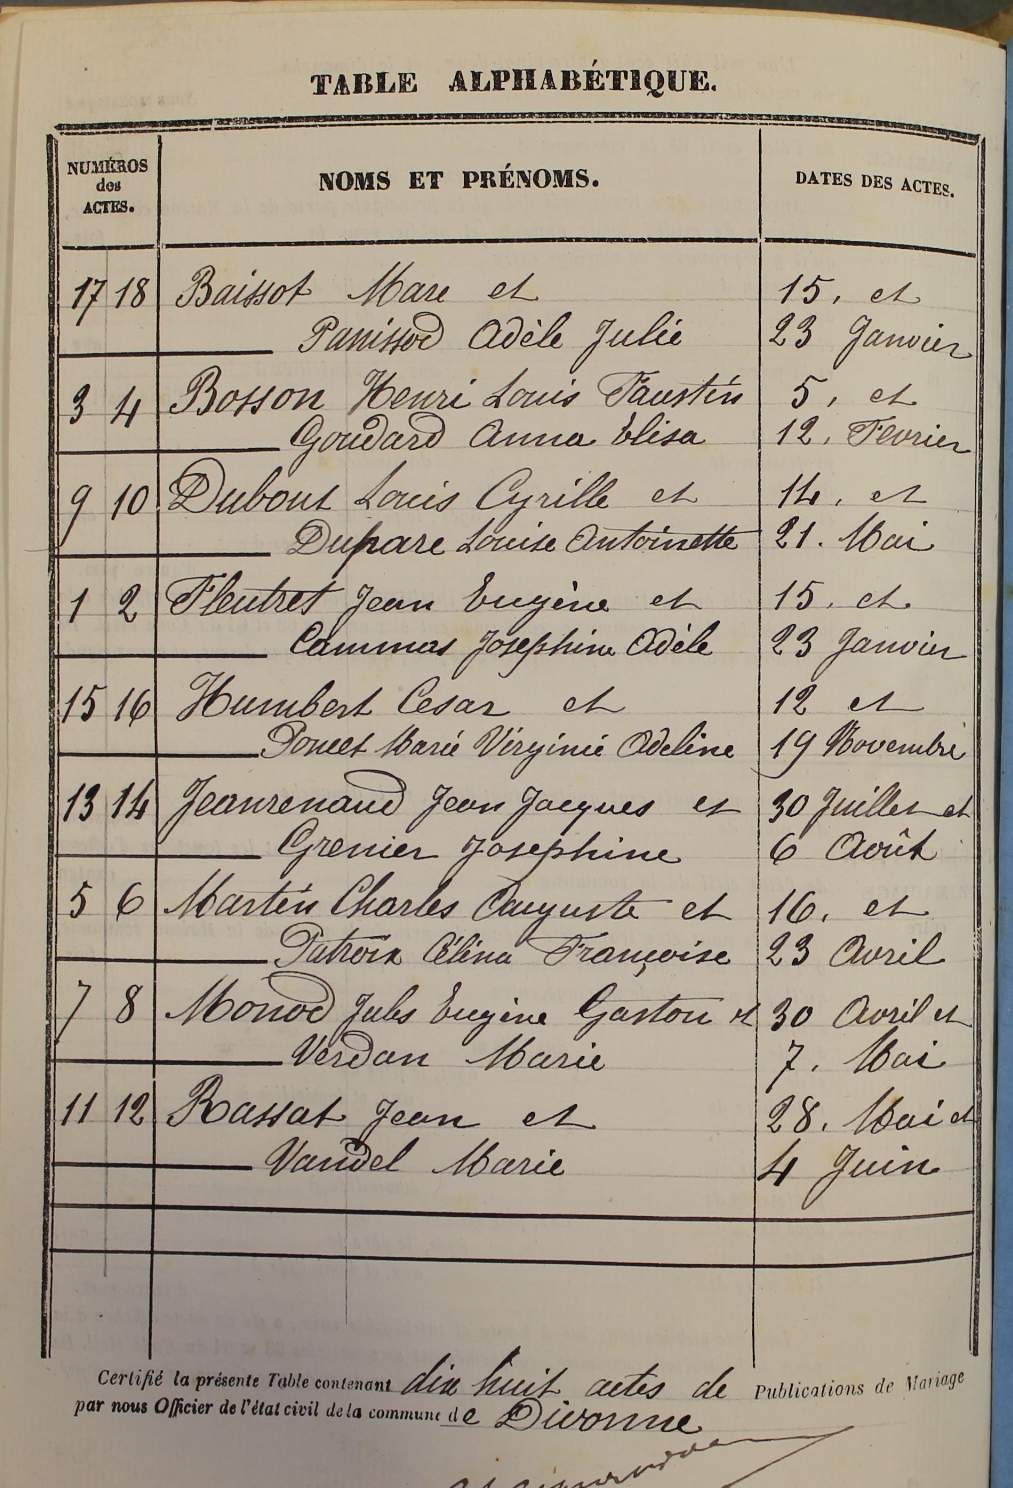 TABLE ALPHABÉTIQUE.
NUMÉROS des ACTES. NOMS ET PRÉNOMS. DATES DES ACTES.
17 18 Baissot Marc et 15. et
Panissod Adèle Julie 23 Janvier
3 4 Bosson Henri Louis Faustin 5. et
Goudard Anna Elisa 12. Février
9 10 Dubout Louis Cyrille et 14. et
Dupare Louise Antoinette 21. Mai
1 2 Fleutret Jean Eugène et 15. et
Cammas Josephine Adèle 23 Janvier
15 16 Humbert Cesar et 12 et
Poncet Marie Virginie Adeline 19 Novembre
13 14 Jeanrenaud Jean Jacques et 30 Juillet et
Grenier Josephine 6 Août
5 6 Martin Charles Auguste et 16. et
Patroix Célina Françoise 23 Avril
7 8 Monod Jules Eugène Gaston et 30 Avril et
Verdan Marie 7. Mai
11 12 Rassat Jean et 28. Mai et
Vandel Marie 4 Juin
Certifié la présente Table contenant dix huit actes de Publications de Mariage
par nous Officier de l'état civil de la commune de Divonne